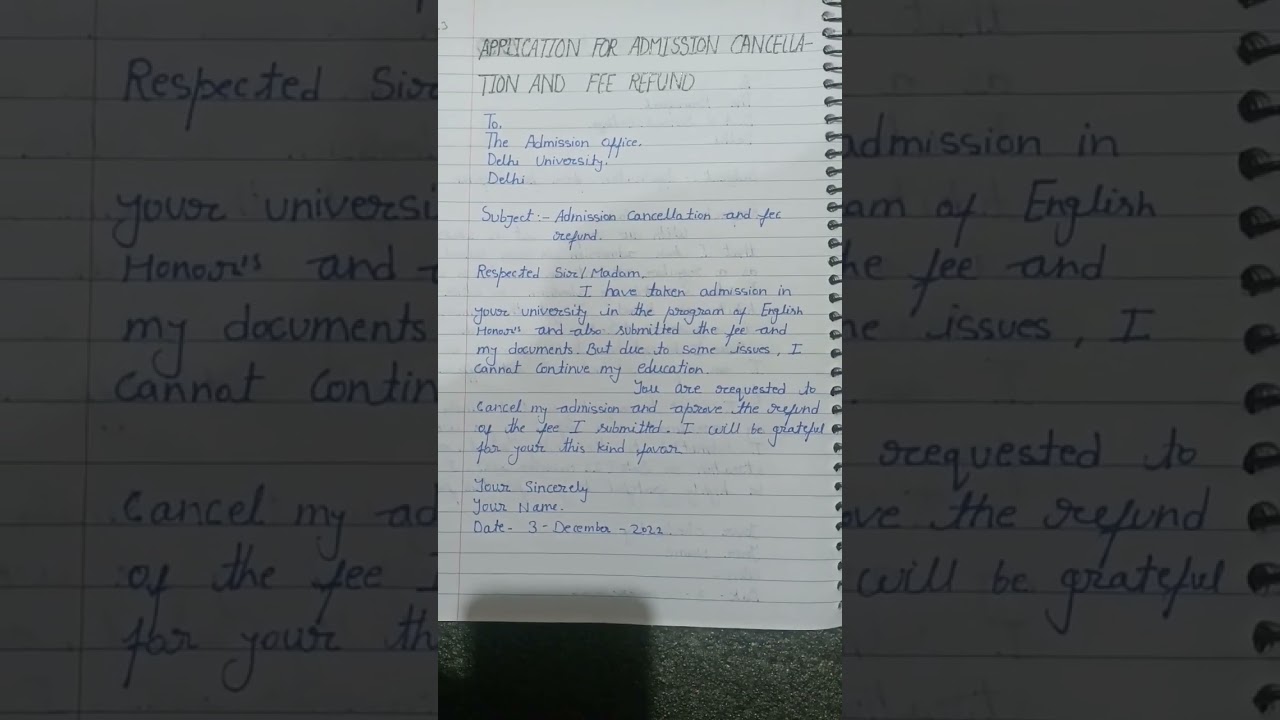 APPLICATION FOR ADMISSION CANCELLA-
TION AND FEE REFUND
To,
The Admission office.
Delhi University.
Delhi.
Subject:- Admission Cancellation and fee
refund.
Respected Sir/Madam,
I have taken admission in
your university in the program of English
Honour's and also submitted the fee and
my documents. But due to some issues, I
cannot continue my education.
You are requested to
cancel my admission and aprove the refund
of the fee I submitted. I will be grateful
for your this kind favor
Your Sincerely
Your Name.
Date - 3 - December - 2022